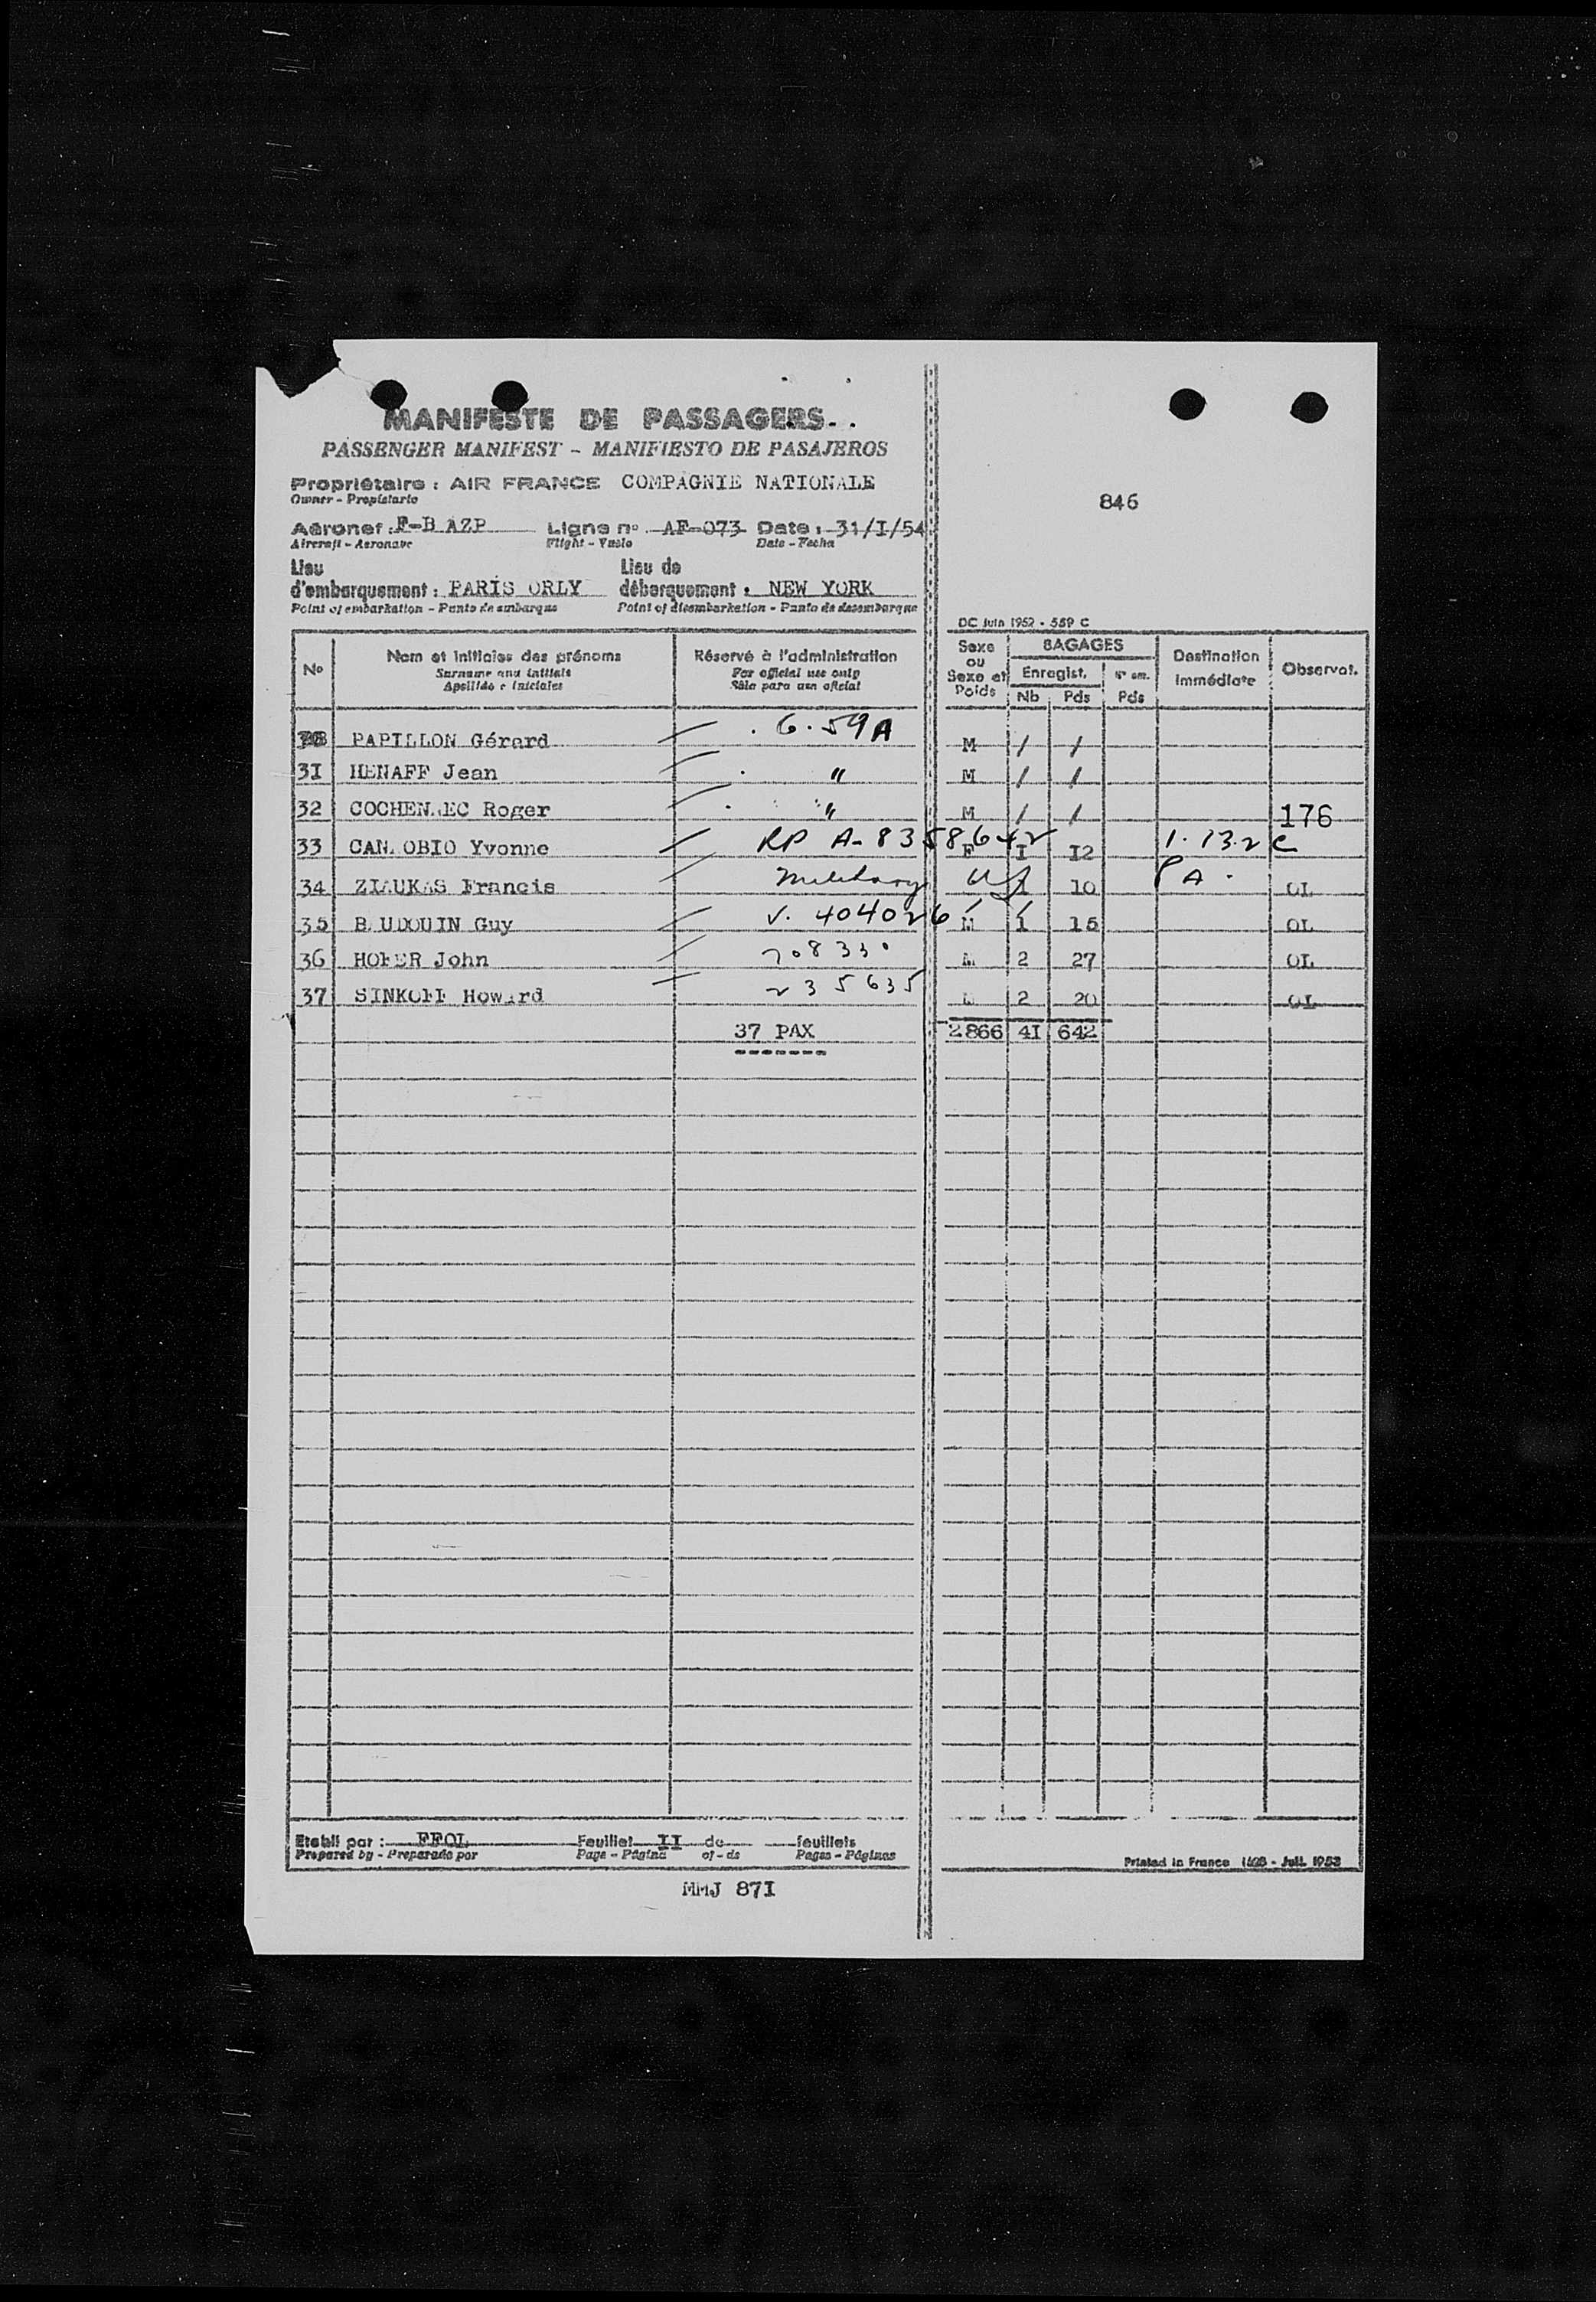 MANIFESTE DE PASSAGERS
PASSENGER MANIFEST - MANIFIESTO DE PASAJEROS
Propriétaire : AIR FRANCE COMPAGNIE NATIONALE
Owner - Propietario
846
Aéronef : F-B AZP Ligne n° AF-073 Date : 31/I/54
Aircraft - Aeronave Flight - Vuelo Date - Fecha
Lieu d'embarquement : PARIS ORLY Lieu de débarquement : NEW YORK
Point of embarkation - Punto de embarque Point of disembarkation - Punto de desembarque
DC Juin 1952 - 559 C
N° Nom et initiales des prénoms Réservé à l'administration Sexe ou Sexe et Poids BAGAGES Destination immédiate Observat.
Surname and initials For official use only Enregist.
Apellido e iniciales Sólo para uso oficial Nb Pds Pds
PAPILLON Gérard 6.59A M / /
3I HENAFF Jean " M / /
32 COCHEN EC Roger " M / / 176
33 CAN OBIO Yvonne RP A-8358642 F I I2 1.13.2 C
34 ZIAUKAS Francis Military US 1 10 PA. OL
35 B UDOUIN Guy V. 404026 M 1 15 OL
36 HOFER John 208330 M 2 27 OL
37 SINKOFF Howard 235635 2 20 OL
37 PAX 2866 4I 642
Etabli par : FFOL Feuillet II de feuillets
Prepared by - Preparado por Page - Página of - de Pages - Páginas
Printed in France - Juil. 1953
MMJ 87I